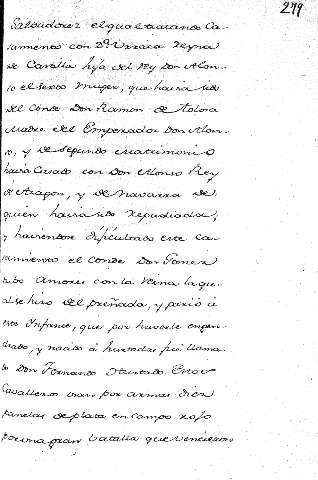 249
Salvadores el qual tratando Ca-
samiento con Dª Urraca Reyna
de Castilla hija del Rey Don Alon-
so el sexto Muger, que havia sido
del Conde Don Ramon de Tolosa
Madre del Emperador Don Alon-
so, y de segundo matrimonio
havia Casado con Don Alonso Rey
de Aragon, y de Navarra de
quien havia sido Repudiada,
y haviendose dificultado este ca-
samiento el Conde Don Gomez
tubo Amores con la Reina la qu-
al se hizo del preñada, y parió á
este Infante, que por haverle engen-
drado, y nacido á hurtadas fué llama-
do Don Fernando Hurtado. Estos
Cavalleros traen por armas diez
panelas de plata en campo rojo
por una gran batalla que vencieron